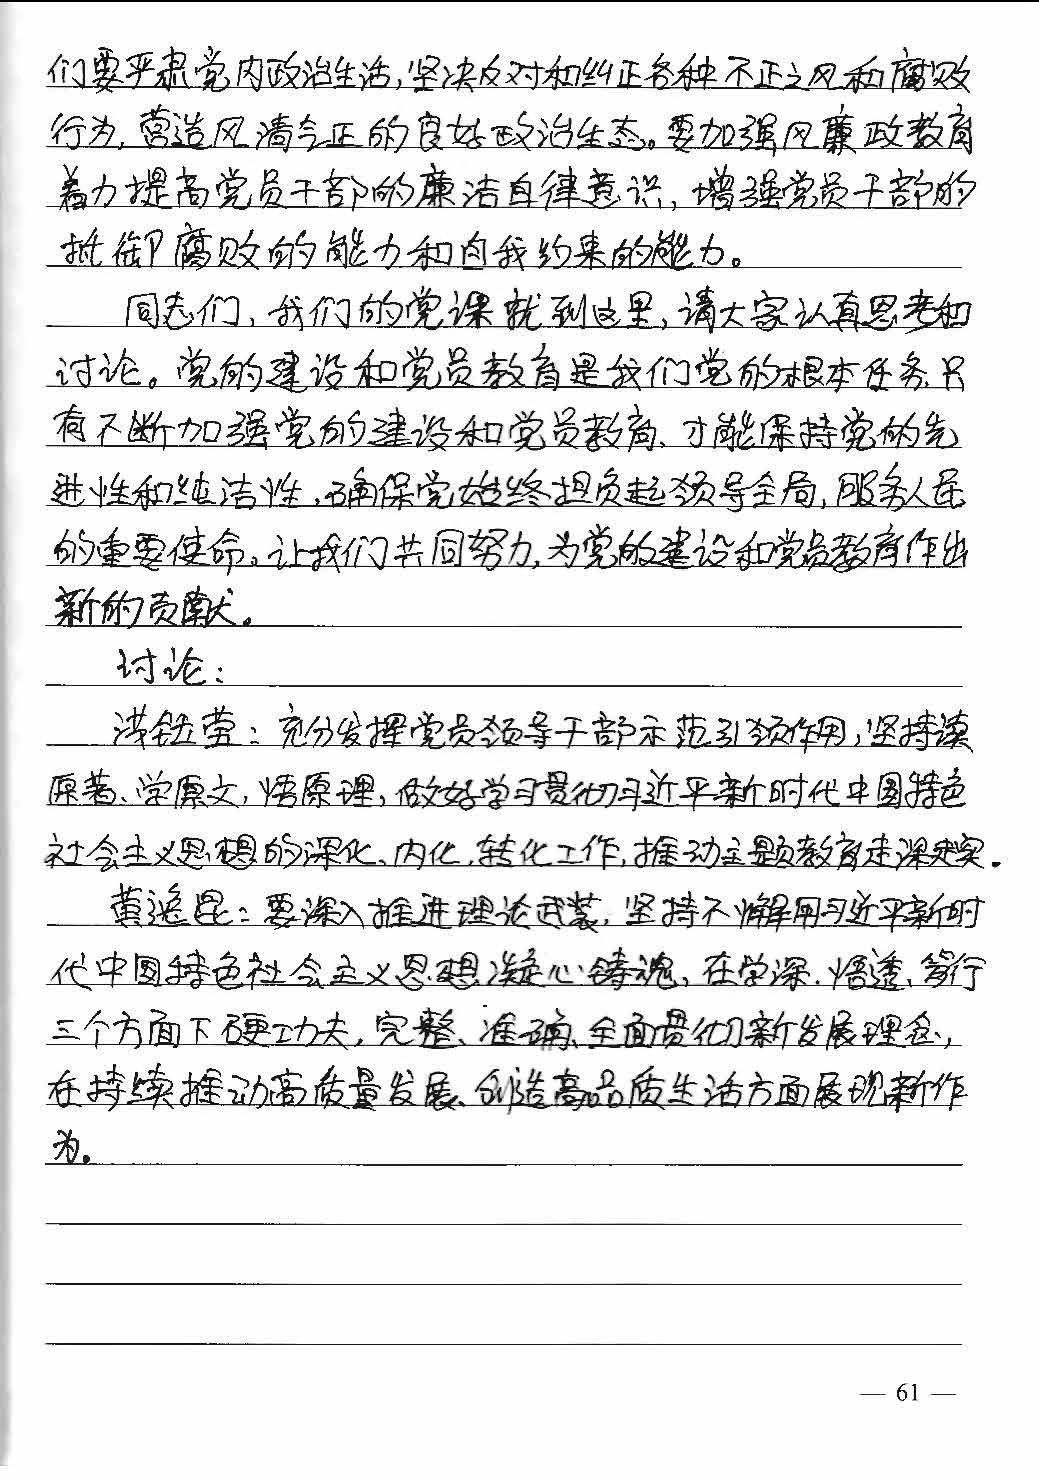 们要严肃党内政治生活,坚决反对和纠正各种不正之风和腐败
行为,营造风清气正的良好政治生态。要加强风廉政教育
着力提高党员干部的廉洁自律意识,增强党员干部的
抵御腐败的能力和自我约束的能力。
同志们,我们的党课就到这里,请大家认真思考和
讨论。党的建设和党员教育是我们党的根本任务,只
有不断加强党的建设和党员教育、才能保持党的先
进性和纯洁性,确保党始终担负起领导全局,服务人民
的重要使命。让我们共同努力,为党的建设和党员教育作出
新的贡献。
讨论:
浅钰莹:充分发挥党员领导干部示范引领作用,坚持读
原著、学原文,悟原理,做好学习贯彻习近平新时代中国特色
社会主义思想的深化、内化,转化工作,推动主题教育走深走实.
黄逸昆:要深入推进理论武装,坚持不懈用习近平新时
代中国特色社会主义思想凝心铸魂,在学深.悟透、笃行
三个方面下硬功夫,完整、准确、全面贯彻新发展理念,
在持续推动高质量发展、创造高品质生活方面展现新作
为.
— 61 —